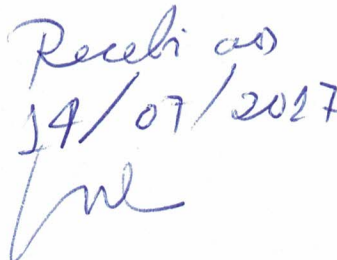 Recebi aos
14/07/2017